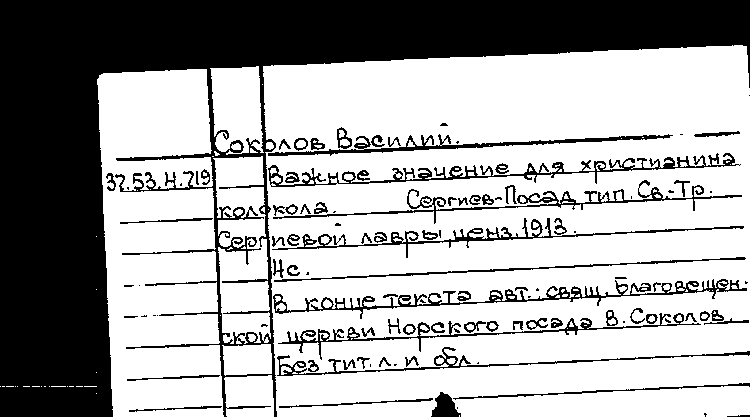 Соколов Василий.
37.53.Н.719 Важное значение для христианина
колокола. Сергиев-Посад, тип. Св.-Тр.
Сергиевой лавры, ценз. 1913.
4с.
В конце текста авт.: свящ. Благовещен-
ской церкви Норского посада В. Соколов.
Без тит. л. и обл.